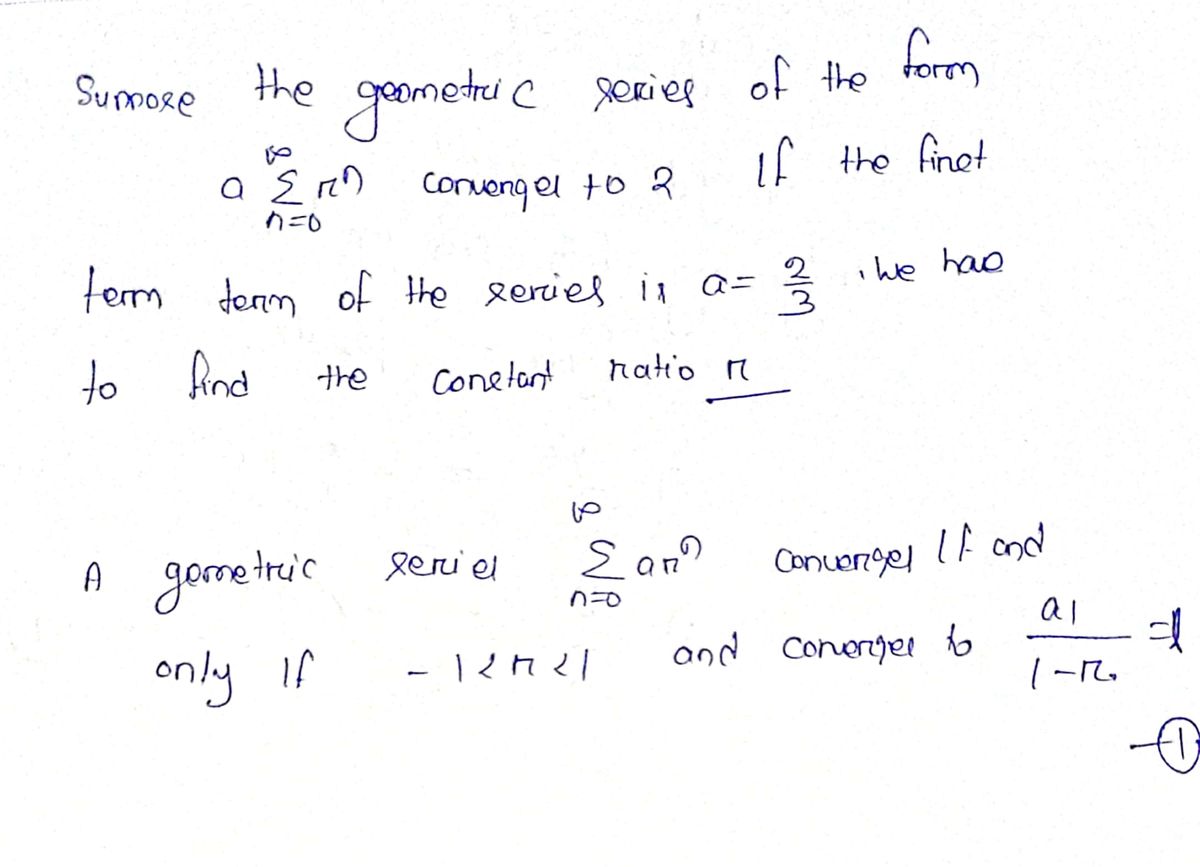 Suppose the geometric series of the form
a ∞ Σ n=0 r^n converges to 2 If the first
term term of the series is a = 2/3 , we have
to find the constant ratio r
A gometric series ∞ Σ n=0 ar^n converges If and
only if -1<r<1 and converges to a1/1-r. = l
-①